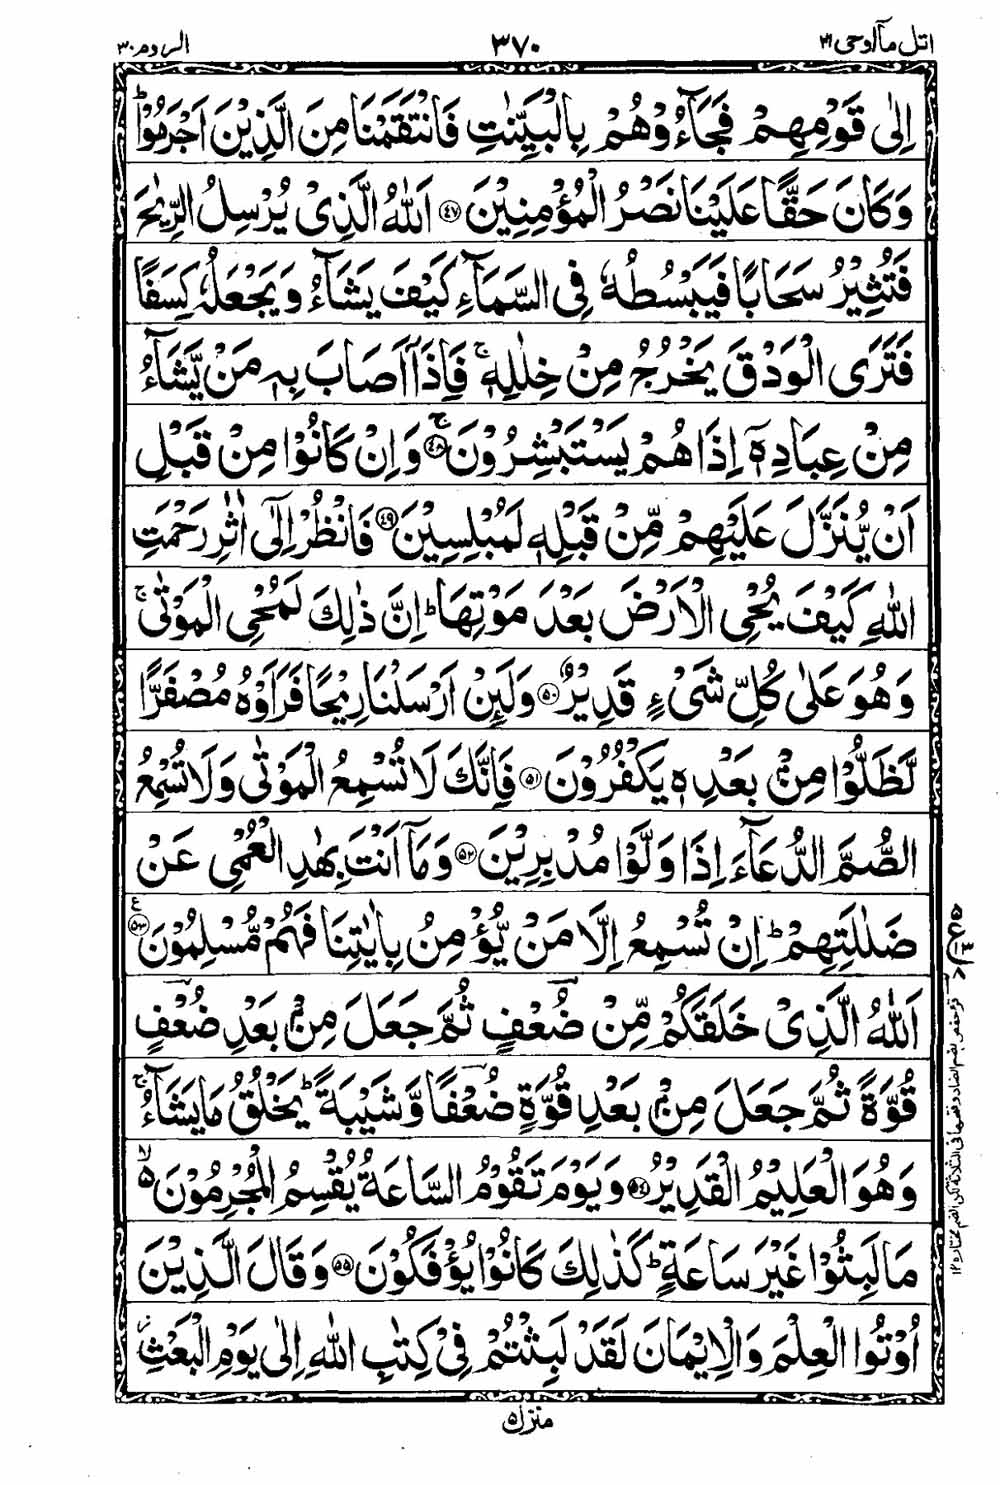 اتل مآاوحی ۲۱
۳۷۰
الروم ۳۰
اِلٰى قَوْمِهِمْ فَجَآءُوْهُمْ بِالْبَيِّنٰتِ فَانْتَقَمْنَا مِنَ الَّذِيْنَ اَجْرَمُوْا ؕ
وَكَانَ حَقًّا عَلَيْنَا نَصْرُ الْمُؤْمِنِيْنَ ﴿۴۷﴾ اَللّٰهُ الَّذِىْ يُرْسِلُ الرِّيٰحَ
فَتُثِيْرُ سَحَابًا فَيَبْسُطُهٗ فِى السَّمَآءِ كَيْفَ يَشَآءُ وَيَجْعَلُهٗ كِسَفًا
فَتَرَى الْوَدْقَ يَخْرُجُ مِنْ خِلٰلِهٖ ۚ فَاِذَاۤ اَصَابَ بِهٖ مَنْ يَّشَآءُ
مِنْ عِبَادِهٖۤ اِذَا هُمْ يَسْتَبْشِرُوْنَ ﴿۴۸﴾ ۚ وَاِنْ كَانُوْا مِنْ قَبْلِ
اَنْ يُّنَزَّلَ عَلَيْهِمْ مِّنْ قَبْلِهٖ لَمُبْلِسِيْنَ ﴿۴۹﴾ فَانْظُرْ اِلٰٓى اٰثٰرِ رَحْمَتِ
اللّٰهِ كَيْفَ يُحْىِ الْاَرْضَ بَعْدَ مَوْتِهَا ؕ اِنَّ ذٰلِكَ لَمُحْىِ الْمَوْتٰى ۚ
وَهُوَ عَلٰى كُلِّ شَىْءٍ قَدِيْرٌ ﴿۵۰﴾ وَلَئِنْ اَرْسَلْنَا رِيْحًا فَرَاَوْهُ مُصْفَرًّا
لَّظَلُّوْا مِنْۢ بَعْدِهٖ يَكْفُرُوْنَ ﴿۵۱﴾ فَاِنَّكَ لَا تُسْمِعُ الْمَوْتٰى وَلَا تُسْمِعُ
الصُّمَّ الدُّعَآءَ اِذَا وَلَّوْا مُدْبِرِيْنَ ﴿۵۲﴾ وَمَاۤ اَنْتَ بِهٰدِ الْعُمْىِ عَنْ
ضَلٰلَتِهِمْ ؕ اِنْ تُسْمِعُ اِلَّا مَنْ يُّؤْمِنُ بِاٰيٰتِنَا فَهُمْ مُّسْلِمُوْنَ ﴿۵۳﴾ ع
اَللّٰهُ الَّذِىْ خَلَقَكُمْ مِّنْ ضُعْفٍ ثُمَّ جَعَلَ مِنْۢ بَعْدِ ضُعْفٍ
قُوَّةً ثُمَّ جَعَلَ مِنْۢ بَعْدِ قُوَّةٍ ضُعْفًا وَّشَيْبَةً ؕ يَخْلُقُ مَا يَشَآءُ ۚ
وَهُوَ الْعَلِيْمُ الْقَدِيْرُ ﴿۵۴﴾ وَيَوْمَ تَقُوْمُ السَّاعَةُ يُقْسِمُ الْمُجْرِمُوْنَ ۙ ۵
مَا لَبِثُوْا غَيْرَ سَاعَةٍ ؕ كَذٰلِكَ كَانُوْا يُؤْفَكُوْنَ ﴿۵۵﴾ وَقَالَ الَّذِيْنَ
اُوْتُوا الْعِلْمَ وَالْاِيْمَانَ لَقَدْ لَبِثْتُمْ فِىْ كِتٰبِ اللّٰهِ اِلٰى يَوْمِ الْبَعْثِ ز
منزل ۵
بضم الضاد وفتحها فى الثلاثة لكن الضم مختار ۱۲